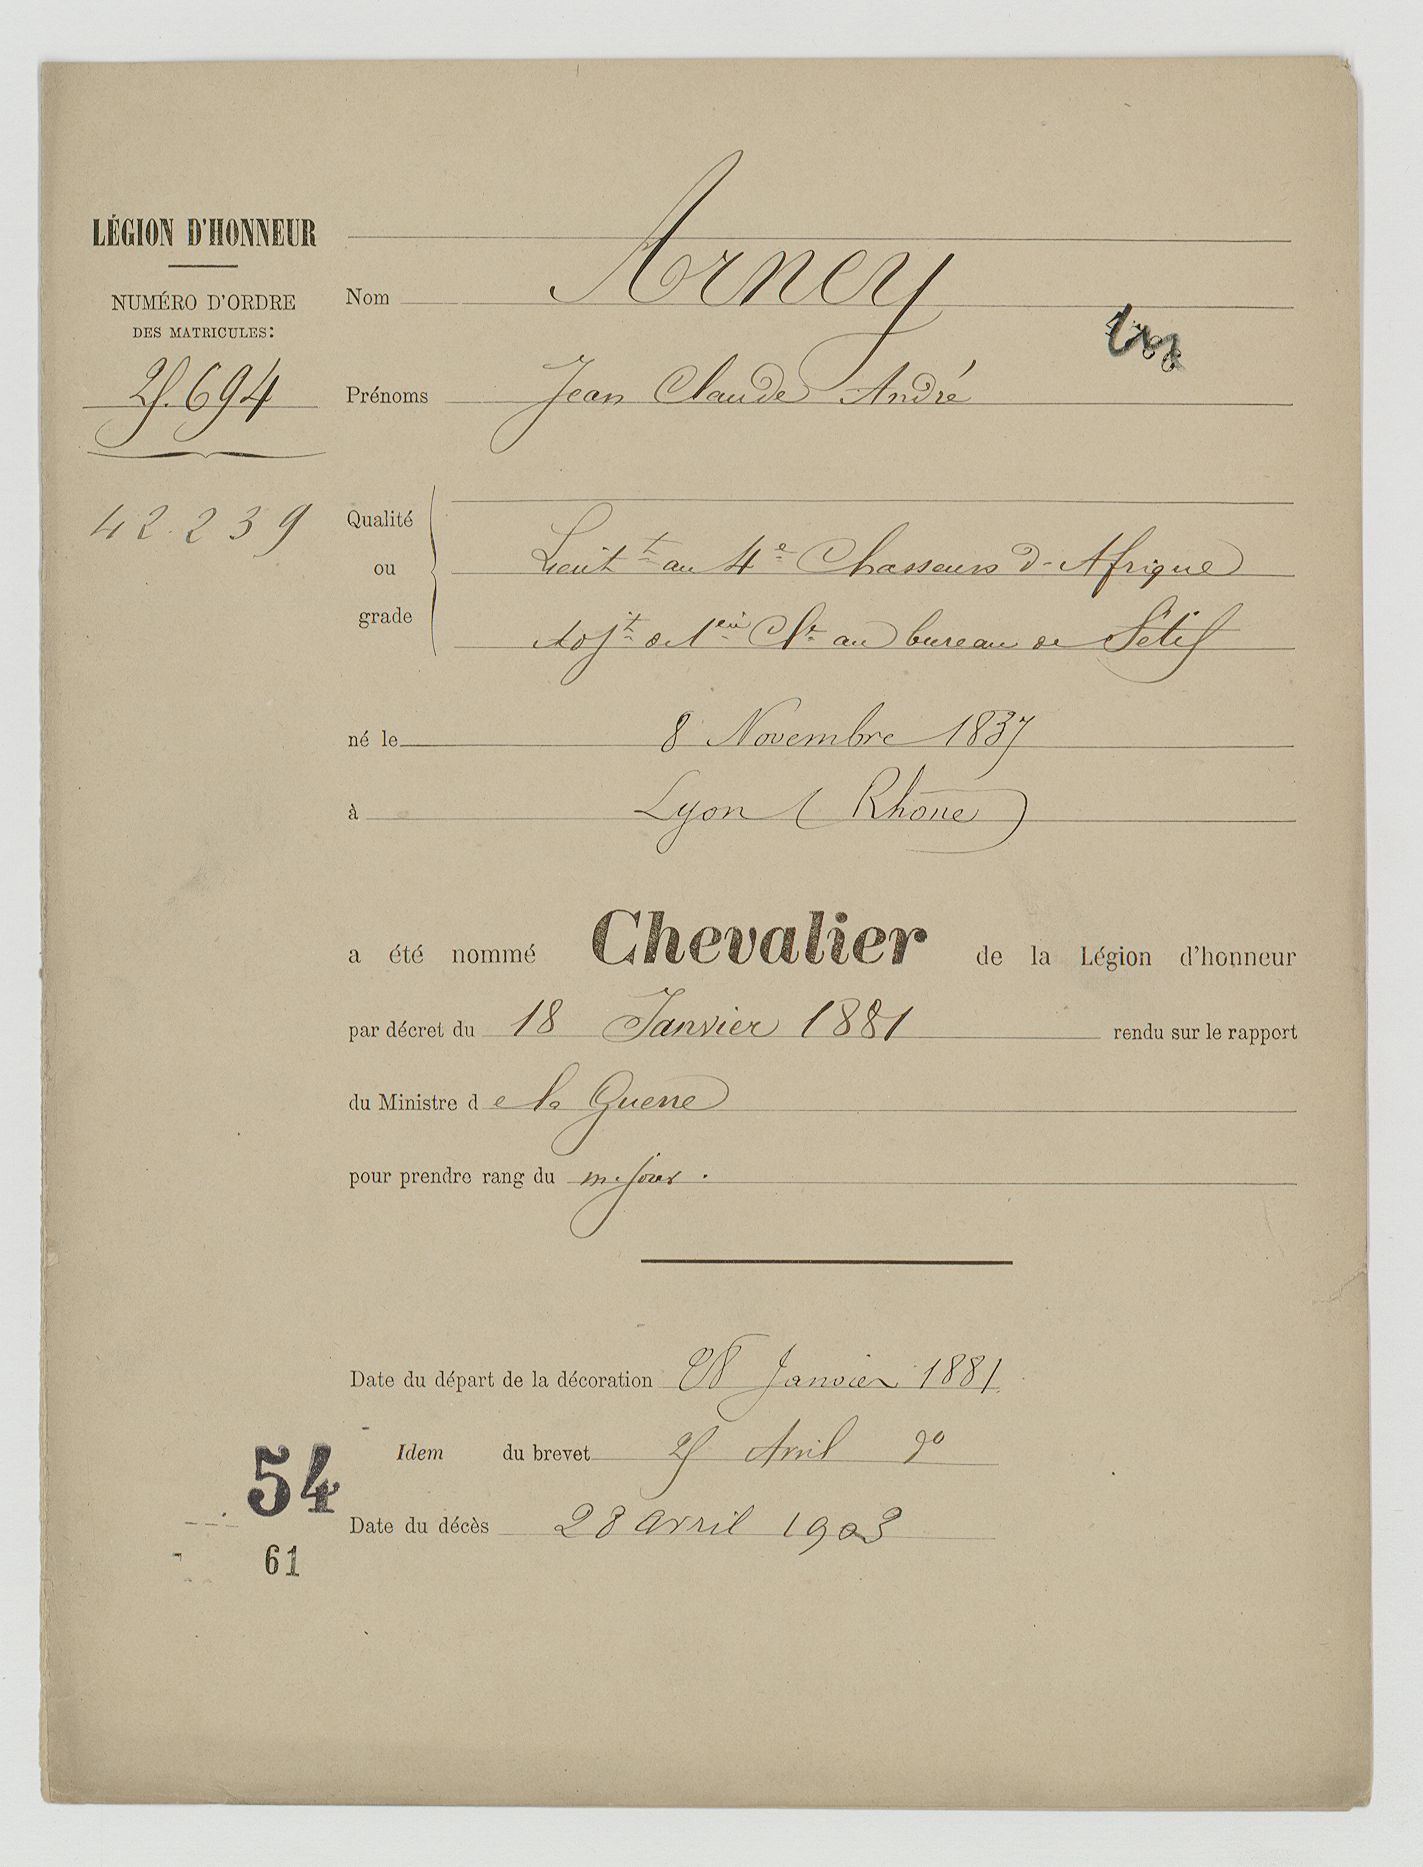 LÉGION D'HONNEUR
NUMÉRO D'ORDRE
DES MATRICULES:
25.694
42.239
Nom Arney
Prénoms Jean Claude André
Qualité
ou
grade
Lieutt au 4e Chasseurs d'Afrique
Adjt de 1ère Cl. au bureau de Sétif
né le 8 Novembre 1837
à Lyon (Rhône)
a été nommé Chevalier de la Légion d'honneur
par décret du 18 Janvier 1881 rendu sur le rapport
du Ministre de la Guerre
pour prendre rang du m. jour.
Date du départ de la décoration 28 Janvier 1881
Idem du brevet 25 Avril do
Date du décès 28 avril 1903
54
61